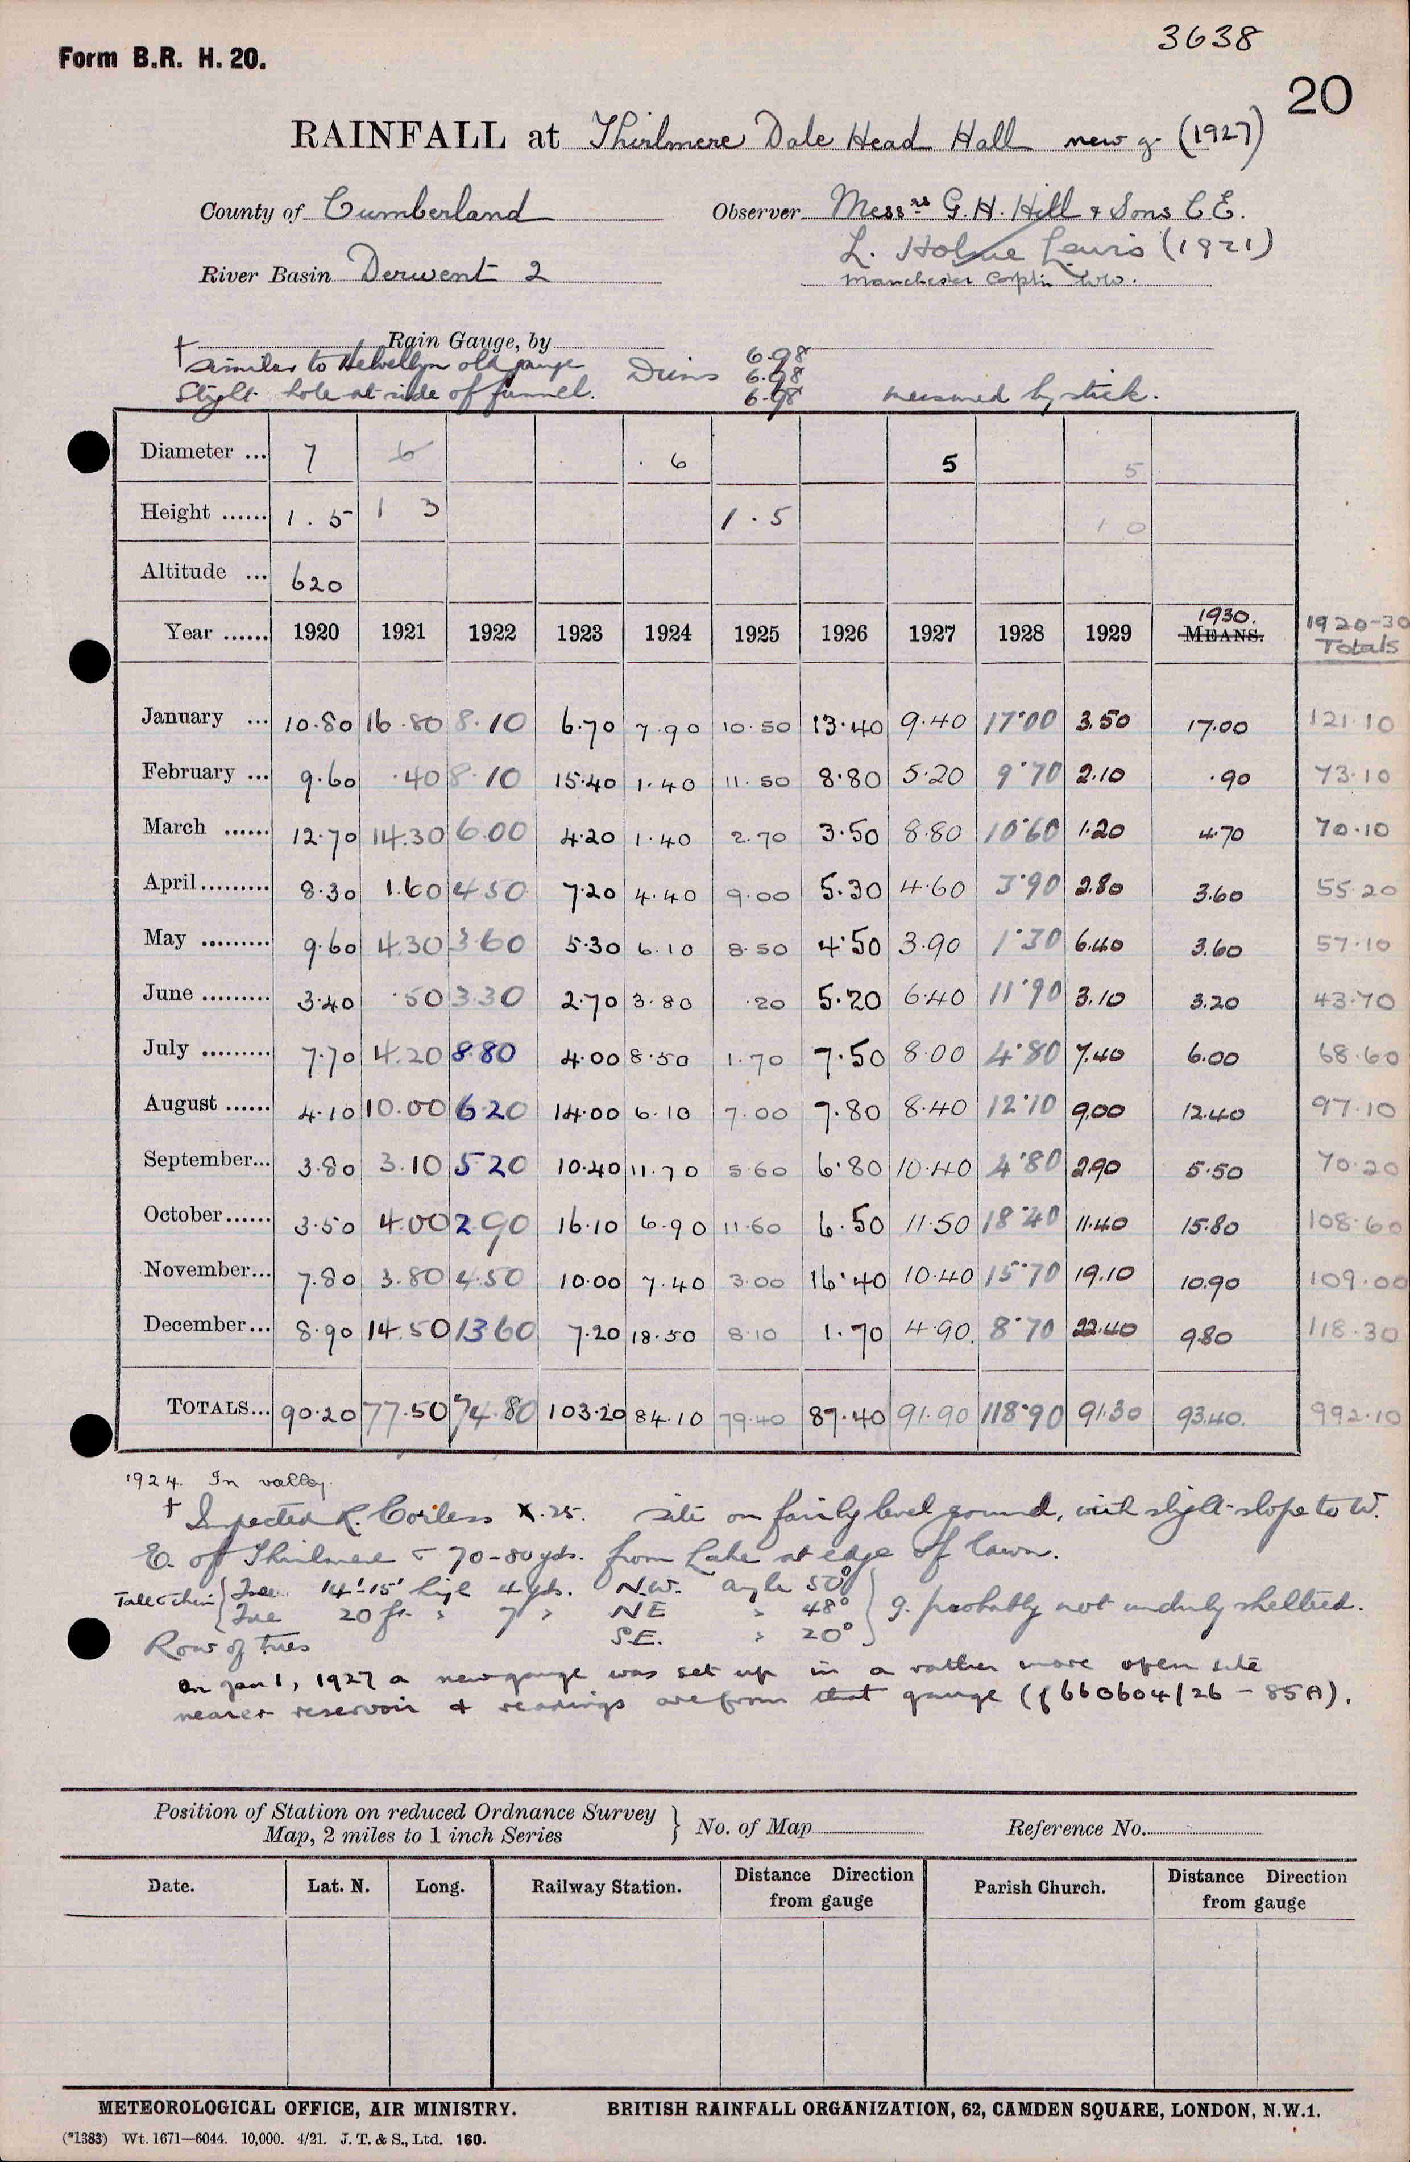 3638
Form B.R. H. 20.
20
RAINFALL at Thirlmere Dale Head Hall new g. (1927)
County of Cumberland Observer Messrs G. H. Hill & Sons C.E.
L. Holme Lewis (1921)
River Basin Derwent 2 Manchester Corptn
Rain Gauge, by
† similar to Helvellyn old gauge
Slight hole at side of funnel.
6.98
6.98
6.98
measured by stick.
Diameter ... 7 6 6 5 5
Height ...... 1.5 1 3 1.5 1 0
Altitude ... 620
Year ...... 1920 1921 1922 1923 1924 1925 1926 1927 1928 1929 1930. MEANS. 1920-30 Totals
January ... 10.80 16.80 8.10 6.70 7.90 10.50 13.40 9.40 17.00 3.50 17.00 121.10
February ... 9.60 .40 8.10 15.40 1.40 11.50 8.80 5.20 9.70 2.10 .90 73.10
March ...... 12.70 14.30 6.00 4.20 1.40 2.70 3.50 8.80 10.60 1.20 4.70 70.10
April......... 8.30 1.60 4.50 7.20 4.40 9.00 5.30 4.60 3.90 2.80 3.60 55.20
May ......... 9.60 4.30 3.60 5.30 6.10 8.50 4.50 3.90 1.30 6.40 3.60 57.10
June ......... 3.40 .50 3.30 2.70 3.80 .20 5.20 6.40 11.90 3.10 3.20 43.70
July ......... 7.70 4.20 8.80 4.00 8.50 1.70 7.50 8.00 4.80 7.40 6.00 68.60
August ...... 4.10 10.00 6.20 14.00 6.10 7.00 7.80 8.40 12.10 9.00 12.40 97.10
September... 3.80 3.10 5.20 10.40 11.70 5.60 6.80 10.40 4.80 2.90 5.50 70.20
October...... 3.50 4.00 2.90 16.10 6.90 11.60 6.50 11.50 18.40 11.40 15.80 108.60
November... 7.80 3.80 4.50 10.00 7.40 3.00 16.40 10.40 15.70 19.10 10.90 109.00
December... 8.90 14.50 13.60 7.20 18.50 8.10 1.70 4.90 8.70 22.40 9.80 118.30
TOTALS... 90.20 77.50 74.80 103.20 84.10 79.40 87.40 91.90 118.90 91.30 93.40. 992.10
1924. In valley.
† Inspected R. Corless X.25. site on fairly level ground, with slight slope to W.
E. of Thirlmere 70-80 yds. from Lake at edge of lawn.
Tree 14'-15' high 4 yds. N.W. angle 50°
Tree 20 ft. " 7 " NE " 48° g. probably not unduly sheltered.
Row of trees S.E. " 20°
On Jan 1, 1927 a new gauge was set up in a rather more open site
nearer reservoir & readings are from that gauge (f 660604/26 - 85A).
Position of Station on reduced Ordnance Survey
Map, 2 miles to 1 inch Series } No. of Map Reference No.
Date. Lat. N. Long. Railway Station. Distance Direction from gauge Parish Church. Distance Direction from gauge
METEOROLOGICAL OFFICE, AIR MINISTRY. BRITISH RAINFALL ORGANIZATION, 62, CAMDEN SQUARE, LONDON, N.W.1.
(*1383) Wt. 1671—6044. 10,000. 4/21. J. T. & S., Ltd. 160.